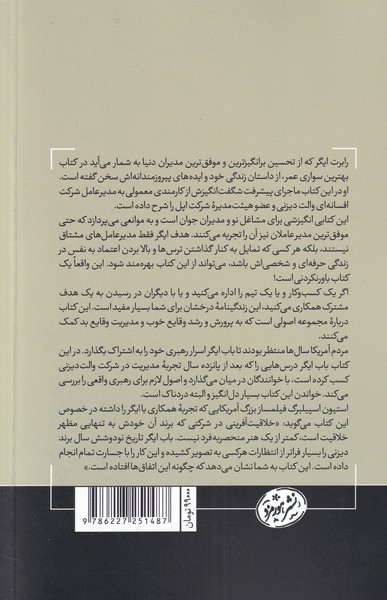 رابرت ایگر که از تحسین برانگیزترین و موفق‌ترین مدیران دنیا به شمار می‌آید در کتاب
بهترین سواری عمر، از داستان زندگی خود و ایده‌های پیروزمندانه‌اش سخن گفته است.
او در این کتاب ماجرای پیشرفت شگفت‌انگیزش از کارمندی معمولی به مدیرعامل شرکت
افسانه‌ای والت دیزنی و عضو هیئت‌مدیرهٔ شرکت اپل را شرح داده است.
این کتابی انگیزشی برای مشاغل نو و مدیران جوان است و به موانعی می‌پردازد که حتی
موفق‌ترین مدیرعاملان نیز آن را تجربه می‌کنند. هدف ایگر فقط مدیرعامل‌های مشتاق
نیستند، بلکه هر کسی که تمایل به کنار گذاشتن ترس‌ها و بالا بردن اعتماد به نفس در
زندگی حرفه‌ای و شخصی‌اش باشد، می‌تواند از این کتاب بهره‌مند شود. این واقعاً یک
کتاب باورنکردنی است!
اگر یک کسب‌وکار و یا یک تیم را اداره می‌کنید و یا با دیگران در رسیدن به یک هدف
مشترک همکاری می‌کنید، این زندگینامهٔ درخشان برای شما بسیار مفید است. این کتاب
دربارهٔ مجموعه اصولی است که به پرورش و رشد وقایع خوب و مدیریت وقایع بد کمک
می‌کنند.
مردم آمریکا سال‌ها منتظر بودند تا باب ایگر اسرار رهبری خود را به اشتراک بگذارد. در این
کتاب باب ایگر درس‌هایی را که بعد از پانزده سال تجربهٔ مدیریت در شرکت والت‌دیزنی
کسب کرده است، با خوانندگان در میان می‌گذارد و اصول لازم برای رهبری واقعی را بررسی
می‌کند. خواندن این کتاب بسیار دل‌انگیز و البته دردناک است.
استیون اسپیلبرگ فیلمساز بزرگ آمریکایی که تجربهٔ همکاری با ایگر را داشته در خصوص
این کتاب می‌گوید: «خلاقیت‌آفرینی در شرکتی که برند آن خودش به تنهایی مظهر
خلاقیت است، کمتر از یک هنر منحصربه‌فرد نیست. باب ایگر تاریخ نودوشش سال برند
دیزنی را بسیار فراتر از انتظارات هرکسی به تصویر کشیده و این کار را با جسارت تمام انجام
داده است. این کتاب به شما نشان می‌دهد که چگونه این اتفاق‌ها افتاده است.»
نشر هورمزد
۹۹۰۰۰ تومان
9 786227 251487